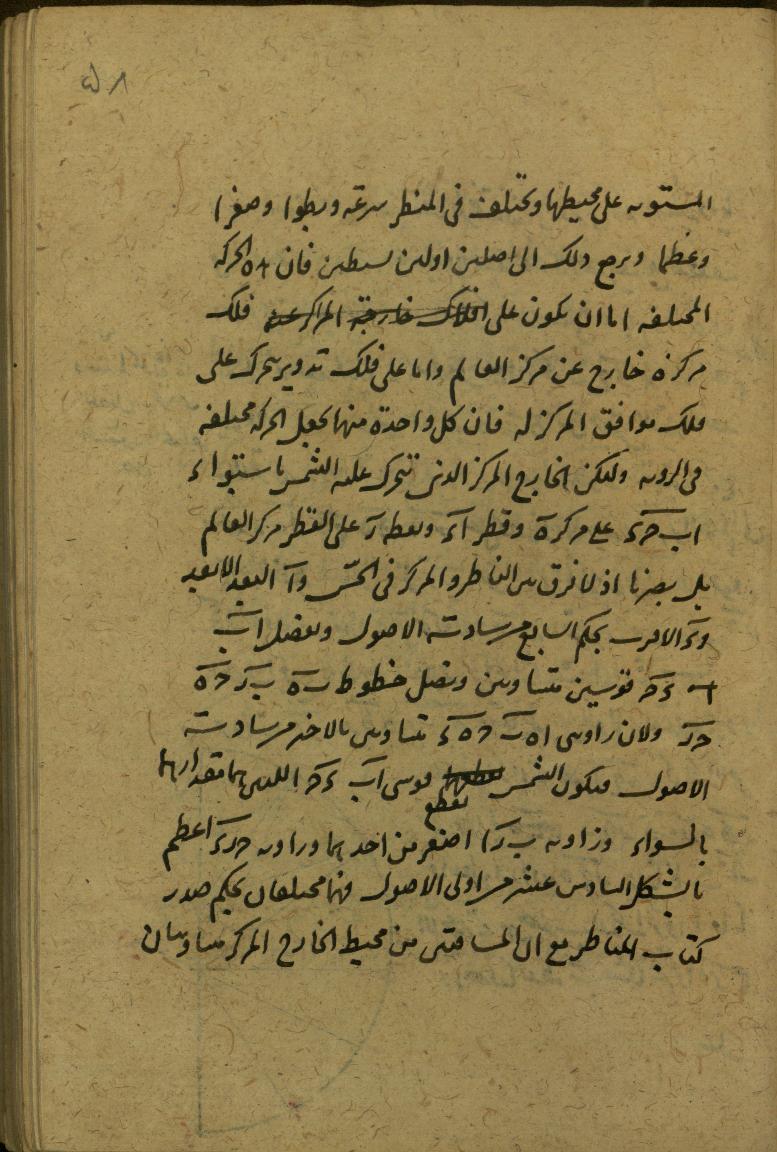 المستويه على محيطها وتختلف فى المنظر سرعة وبطوا وصغرا
وعظما ويرجع ذلك الى اصلين اولين بسيطين فان هذه الحركه
المختلفه اما ان يكون على افلاك خارجة المراكز عن فلك
مركزه خارج عن مركز العالم واما على فلك تدوير يتحرك على
فلك موافق المركز له فان كل واحدة منهما تجعل الحركه مختلفه
فى الرويه وليكن الخارج المركز الذى تتحرك عليه الشمس باستواء
اب حء على مركزه وقطر اء ونقطه ر على القطر مركز العالم
بل بصرنا اذ لا فرق بين الناظر والمركز فى الحس و ا البعد الابعد
وء الاقرب بحكم السابع من سادسة الاصول ونفصل اب
ءح قوسين متساويين ونصل خطوط ب ه ب ر ح ه
ح ر ولان زاويتى ا ه ب ح ه ء متساويتين بالاخير من سادسة
الاصول فيكون الشمس تقطع قوسى اب ءح اللتين هما مقدارهما
بالسواء وزاويه ب ر ا اصغر من احديهما وزاويه ح ر ء اعظم
بالشكل السادس عشر من اولى الاصول فهما مختلفتان بحكم صدر
كتاب المناظر مع ان المسافتين من محيط الخارج المركز متساويتان